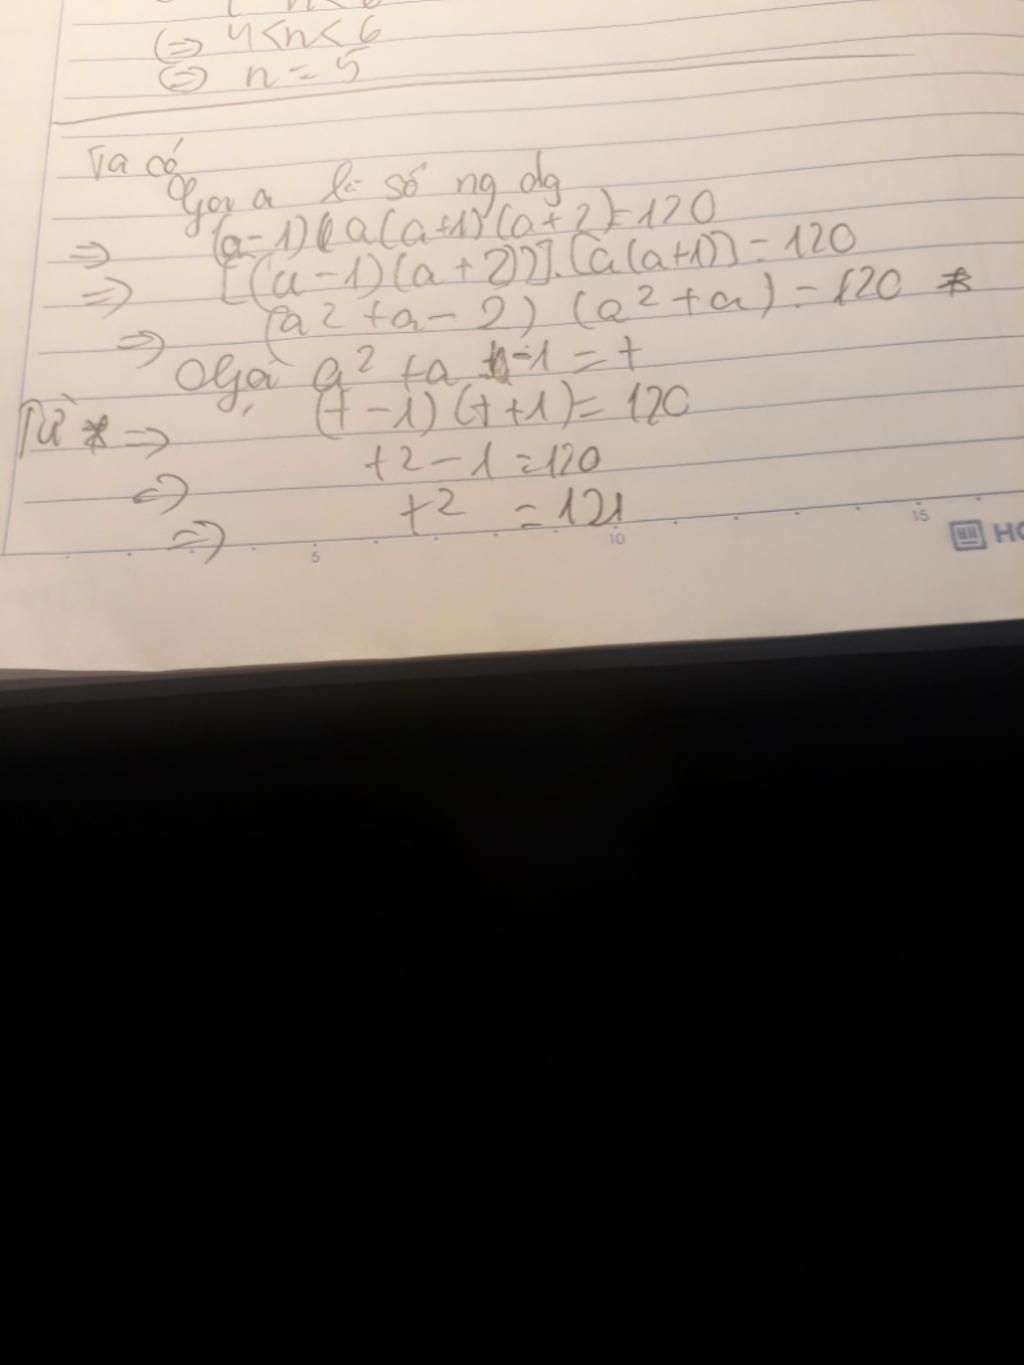 ⇔ 4<n<6
⇔ n = 5
Ta có
Gọi a là số ng dg
⇒ (a-1)(a(a+1)(a+2)=120
⇒ [(a-1)(a+2)]].[a(a+1)]=120
⇒ (a2+a-2) (a2+a)=120 *
a2 +a -1 = t
Từ * ⇒ (t-1)(t+1)=120
⇔ t2-1=120
⇒ t2 =121
5 10 15